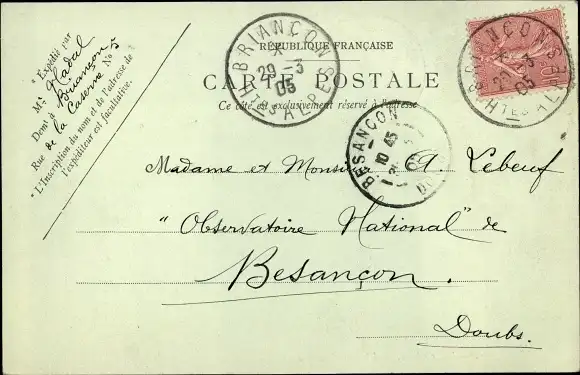 RÉPUBLIQUE FRANÇAISE
CARTE POSTALE
Ce côté est exclusivement réservé à l'adresse
Expédié par
Mr Nadal
Demt à Briançon
Rue de la Caserne No 5
"L'Inscription du nom et de l'adresse de
l'expéditeur est facultative.
BRIANÇON
29 -3
05
HTES ALPES
BRIANÇON
29 -3
05
HTES ALPES
BESANÇON
10 45
Madame et Monsieur A. Lebeuf
"Observatoire National" de
Besançon.
Doubs.